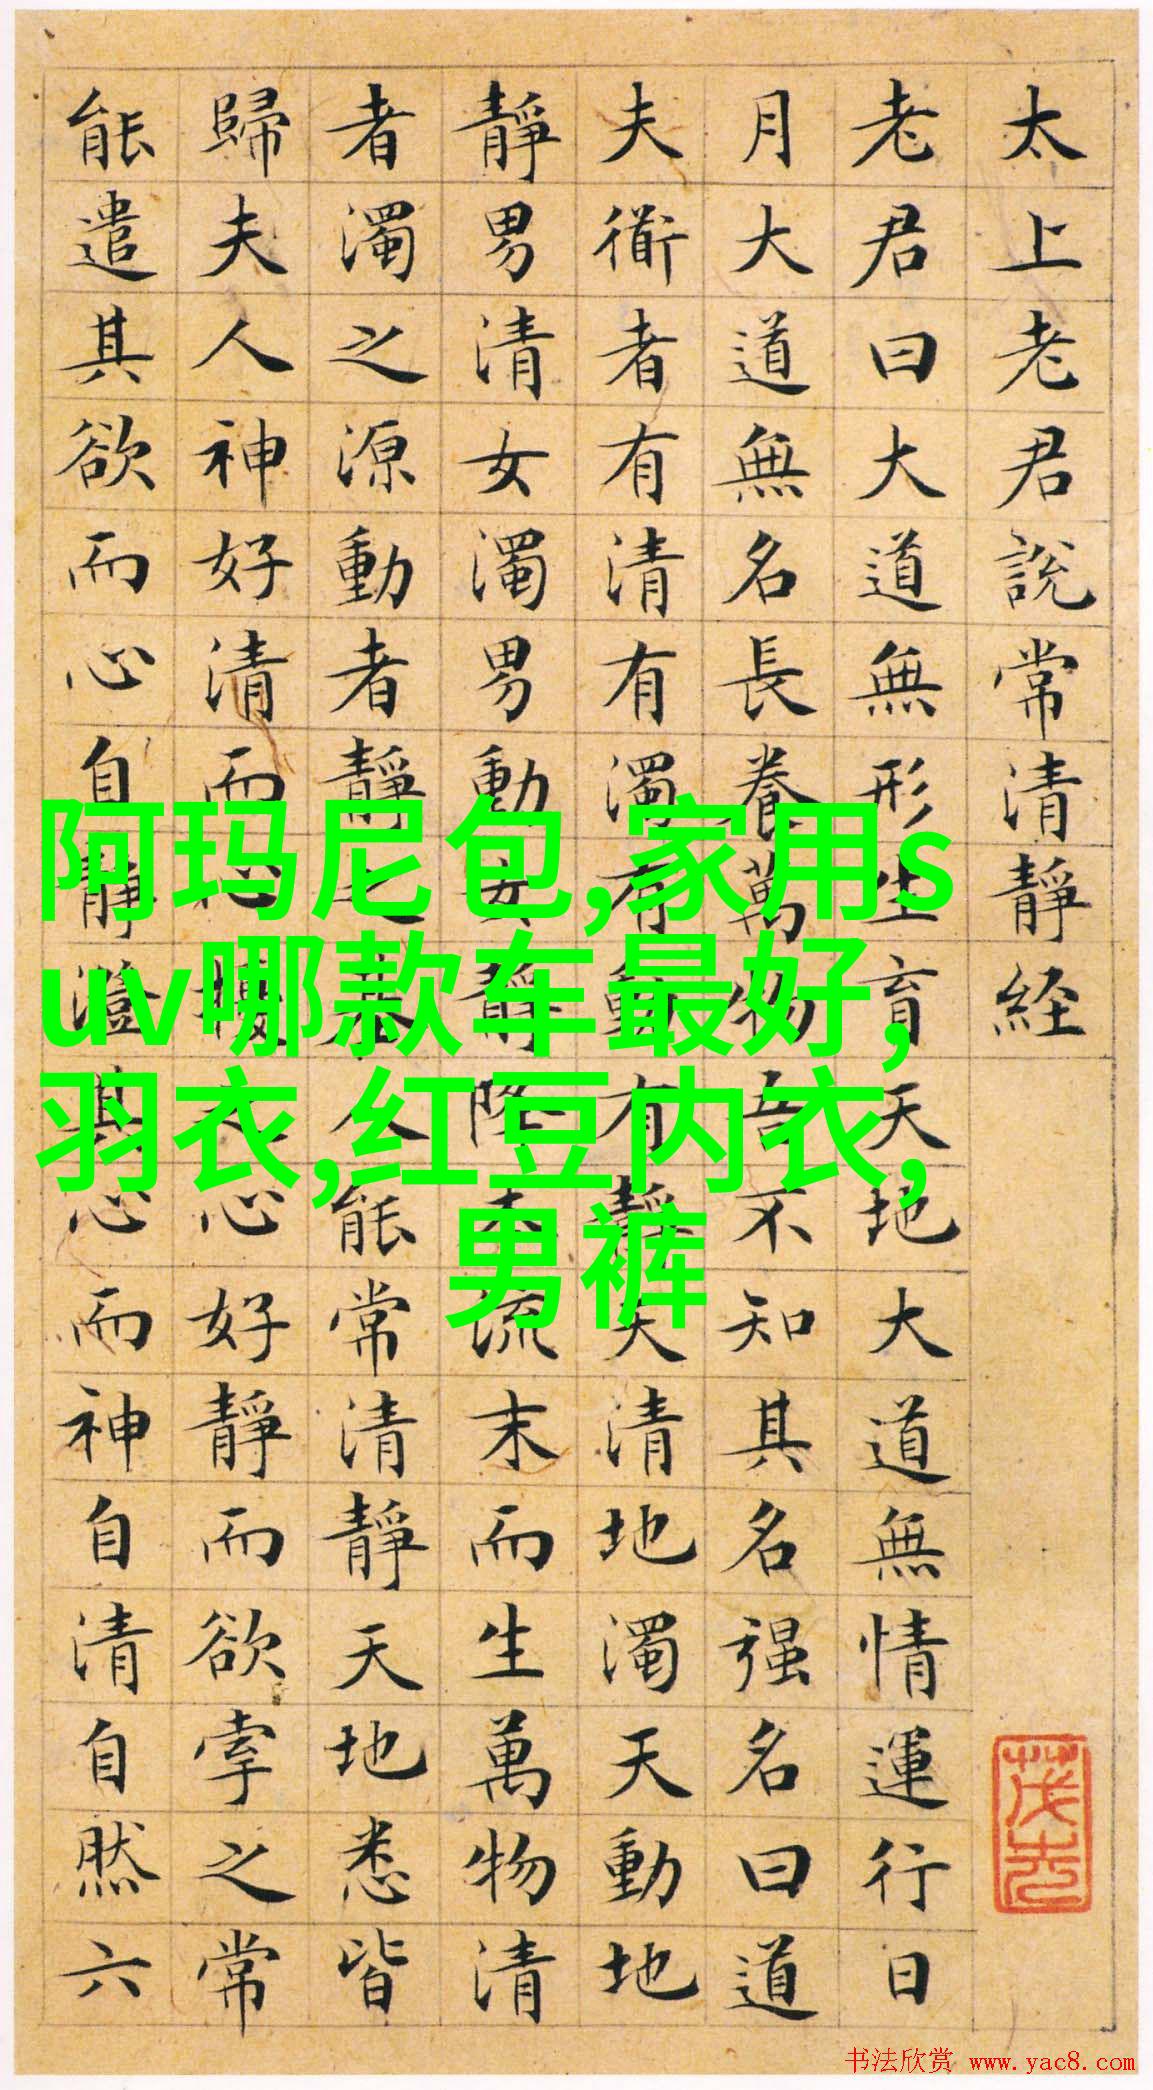 太上老君說常清靜経
老君曰大道無形生育天地大道無情運行日
月大道無名長養萬物吾不知其名强名曰道
夫衜者有清有濁有動有靜天清地濁天動地
靜男清女濁男動女靜降本流末而生萬物清
者濁之源動者靜之基人能常清靜天地悉皆
歸夫人神好清而心擾之心好靜而欲牽之常
能遣其欲而心自靜澄其心而神自清自然六
阿玛尼包,家用s
uv哪款车最好,
羽衣,红豆内衣,
男裤
书法欣赏 www.yac8.com